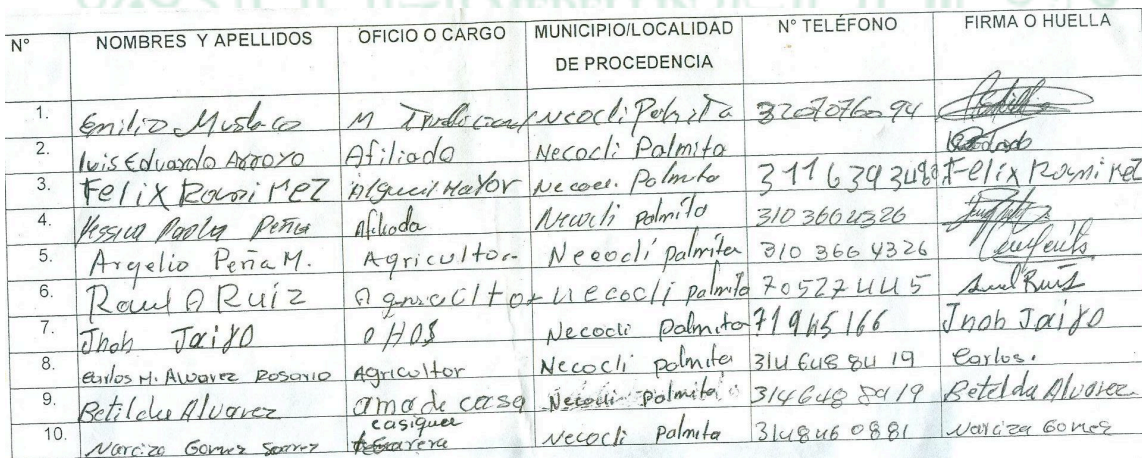 N° NOMBRES Y APELLIDOS OFICIO O CARGO MUNICIPIO/LOCALIDAD DE PROCEDENCIA N° TELÉFONO FIRMA O HUELLA
1. Emilio Muslaco M Necocli Palmita 3207076094
2. luis Eduardo Arroyo Afiliado Necocli Palmito
3. Felix Rami rez Alguacil Mayor Necocli Palmito 3116393480 Felix Rami rez
4. Yessica Paola Peña Afiliada Necocli palmito 3103664326
5. Argelio Peña M. Agricultor Necocli palmita 310 366 4326
6. Raul A Ruiz Agricultor Necocli palmita 70527445 Ruis
7. Jhob Jairo Necocli palmita 71945166 Jhob Jairo
8. Carlos M. Alvarez Rosario Agricultor Necocli palmita 314 648 84 19 Carlos.
9. Betilda Alvarez ama de casa Necocli palmita 3146488419 Betilda Alvarez
10. Narciza Gomez Suarez casiquee Necocli Palmita 3148460881 Narciza Gomez